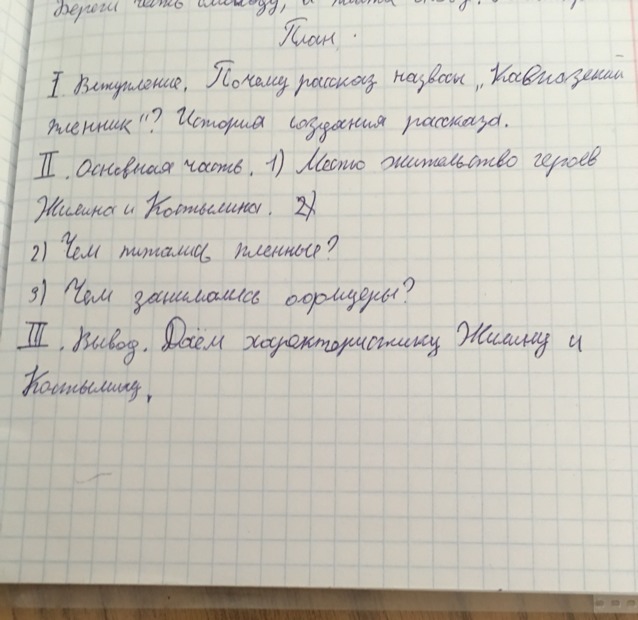 Береги честь смолоду, а
План.
I Вступление. Почему рассказ назвали „Кавказский
пленник"? История создания рассказа.
II. Основная часть. 1) Место жительство героев
Жилина и Костылина. 2)
2) Чем питались пленные?
3) Чем занимались офицеры?
III. Вывод. Даём характеристику Жилину и
Костылину.